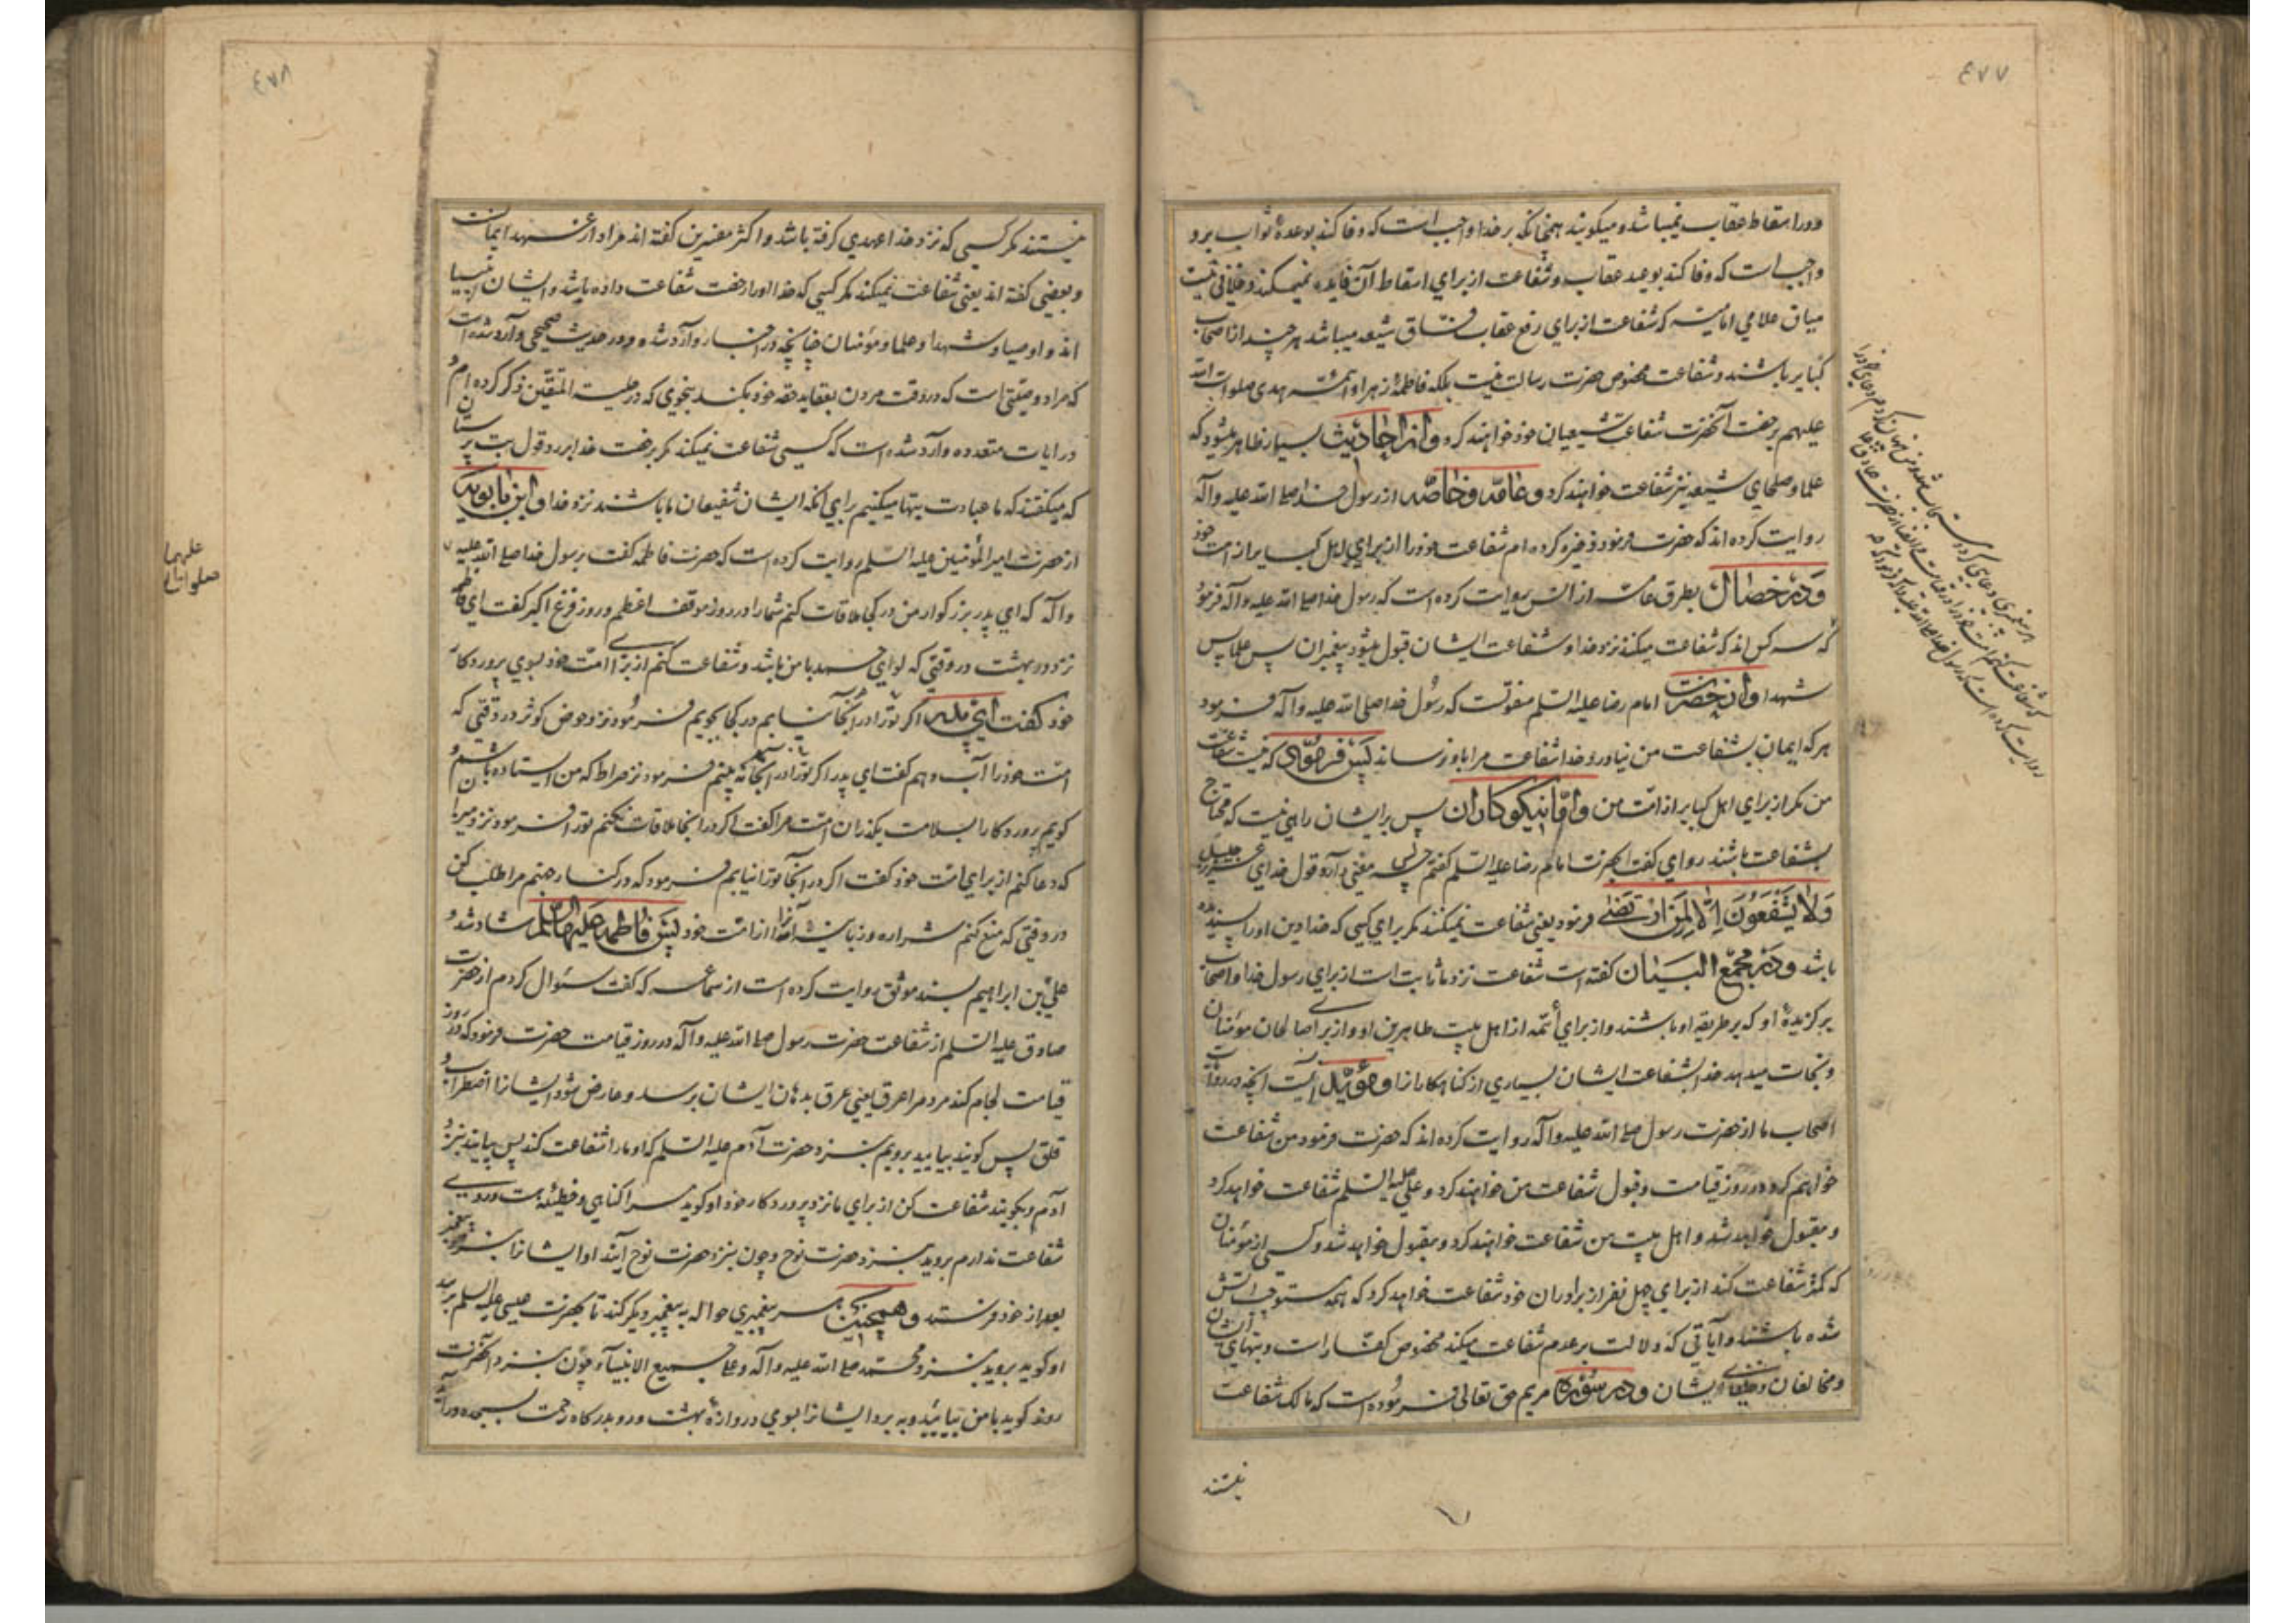 ٤٧٧
و در اسقاط عقاب نمیباشد و میکویند همچنانکه بر خدا واجب است که وفا کند بوعدهٔ ثواب برو
واجب است که وفا کند بوعید عقاب و شفاعت از برای اسقاط آن فایده نمیکند و خلافی نیست
میان علمای امامیه که شفاعت از برای رفع عقاب فساق شیعه میباشد هر چند از اصحاب
کبایر باشند و شفاعت مخصوص حضرت رسالت نیست بلکه فاطمهٔ زهرا و ائمه هدی صلوات الله
علیهم برخصت آنحضرت شفاعت شیعیان خود خواهند کرد و از احادیث بسیار ظاهر میشود که
علما و صلحای شیعه نیز شفاعت خواهند کرد و عامه و خاصه از رسول خدا صلی الله علیه و آله
روایت کرده اند که حضرت فرمود ذخیره کرده ام شفاعت خود را از برای اهل کبایر از امت خود
و در خصال بطرق عامه از انس روایت کرده است که رسول خدا صلی الله علیه و آله فرمود
که سه کس اند که شفاعت میکنند نزد خدا و شفاعت ایشان قبول میشود پیغمبران پس علما پس
شهدا و از حضرت امام رضا علیه السلم منقولست که رسول خدا صلی الله علیه و آله فرمود
هر که ایمان بشفاعت من نیاورد خدا شفاعت مرا باو نرساند پس فرمود که نیست شفاعت
من مکر از برای اهل کبایر از امت من و اما نیکوکاران پس بر ایشان راهی نیست که محتاج
بشفاعت باشند راوی کفت بحضرت امام رضا علیه السلم کفتم پس چه معنی دارد قول خدای عزوجل
وَلا یَشْفَعُونَ اِلّا لِمَنِ ارْتَضی فرمود یعنی شفاعت نمیکنند مکر برای کسی که خدا دین او را پسندیده
باشد و در مجمع البیان کفته است شفاعت نزد ما ثابت است از برای رسول خدا و اصحاب
برکزیدهٔ او که بر طریقه او باشند و از برای أئمه از اهل بیت طاهرین او و از برای صالحان مؤمنان
و نجات میدهد خدا بشفاعت ایشان بسیاری از کناهکارانرا و مؤید اینست آنچه در روایت
اصحاب ما از حضرت رسول صلی الله علیه و آله روایت کرده اند که حضرت فرمود من شفاعت
خواهم کرد در روز قیامت و قبول شفاعت من خواهند کرد و علی علیه السلم شفاعت خواهد کرد
و مقبول خواهد شد و اهل بیت من شفاعت خواهند کرد و مقبول خواهد شد و کسی از مؤمنان
که کمتر شفاعت کند از برای چهل نفر از برادران خود شفاعت خواهد کرد که همه مستوجب آتش
شده باشند و آیاتی که دلالت بر عدم شفاعت میکند مخصوص کفار است و بتهای ایشان
و مخالفان و خلفای ایشان و در سوره مریم حق تعالی فرموده است که مالک شفاعت
نیستند
٤٧٨
نیستند مکر کسی که نزد خدا عهدی کرفته باشد و اکثر مفسرین کفته اند مراد از عهد ایمانست
و بعضی کفته اند یعنی شفاعت نمیکند مکر کسی که خدا او را رخصت شفاعت داده باشد و ایشان انبیا
اند و اوصیا و شهدا و علما و مؤمنان چنانچه در اخبار وارد شده و در حدیث صحیحی وارد شده است
که مراد وصیتی است که در وقت مردن بعقاید حقه خود بکند بنحوی که در حلیة المتقین ذکر کرده ام و
در ایات متعدده وارد شده است که کسی شفاعت نمیکند مکر برخصت خدا برد قول بت پرستان
که میکفتند که ما عبادت بتها میکنیم برای آنکه ایشان شفیعان ما باشند نزد خدا و ابن بابویه
از حضرت امیر المؤمنین علیه السلم روایت کرده است که حضرت فاطمه کفت برسول خدا صلی الله علیه
و آله که ای پدر بزرکوار من در کجا ملاقات کنم شما را در روز موقف اعظم و روز فزع اکبر کفت ای فاطمه
نزد در بهشت در وقتی که لوای حمد با من باشد و شفاعت کنم از برای امت خود بسوی پروردکار
خود کفت ای پدر اکر تو را در آنجا نیابم در کجا بجویم فرمود نزد حوض کوثر در وقتی که
امت خود را آب دهم کفت ای پدر اکر تو را در آنجا نه بینم فرمود نزد صراط که من ایستاده باشم و
کویم پروردکارا بسلامت بکذران امت مرا کفت اکر در آنجا ملاقات نکنم تو را فرمود نزد میزان
که دعا کنم از برای امت خود کفت اکر در آنجا تو را نیابم فرمود که در کنار جهنم مرا طلب کن
در وقتی که منع کنم شراره و زبانه آنرا از امت خود پس فاطمه علیها السلم شاد شد و
علی بن ابراهیم بسند موثق روایت کرده است از سماعه که کفت سئوال کردم از حضرت
صادق علیه السلم از شفاعت حضرت رسول صلی الله علیه و آله در روز قیامت حضرت فرمود که در روز
قیامت لجام کند مردم را عرق یعنی عرق بدهان ایشان برسد و عارض شود ایشانرا اضطراب و
قلق پس کویند بیایید برویم بنزد حضرت آدم علیه السلم که او ما را شفاعت کند پس بیایند بنزد
آدم و بکویند شفاعت کن از برای ما نزد پروردکار خود او کوید مرا کناهی و خطیئه هست و روی
شفاعت ندارم بروید بنزد حضرت نوح و چون بنزد حضرت نوح آیند او ایشانرا بنزد پیغمبر
بعد از خود فرستد و همچنین هر پیغمبری حواله به پیغمبر دیکر کند تا بحضرت عیسی علیه السلم برسد
او کوید بروید بنزد محمد صلی الله علیه و آله و علی جمیع الانبیآء و چون بنزد آنحضرت
روند کوید با من بیائید و به برد ایشانرا بسوی دروازهٔ بهشت و رو بدرکاه رحمت بسجده درآید
علیهما
صلوات الله